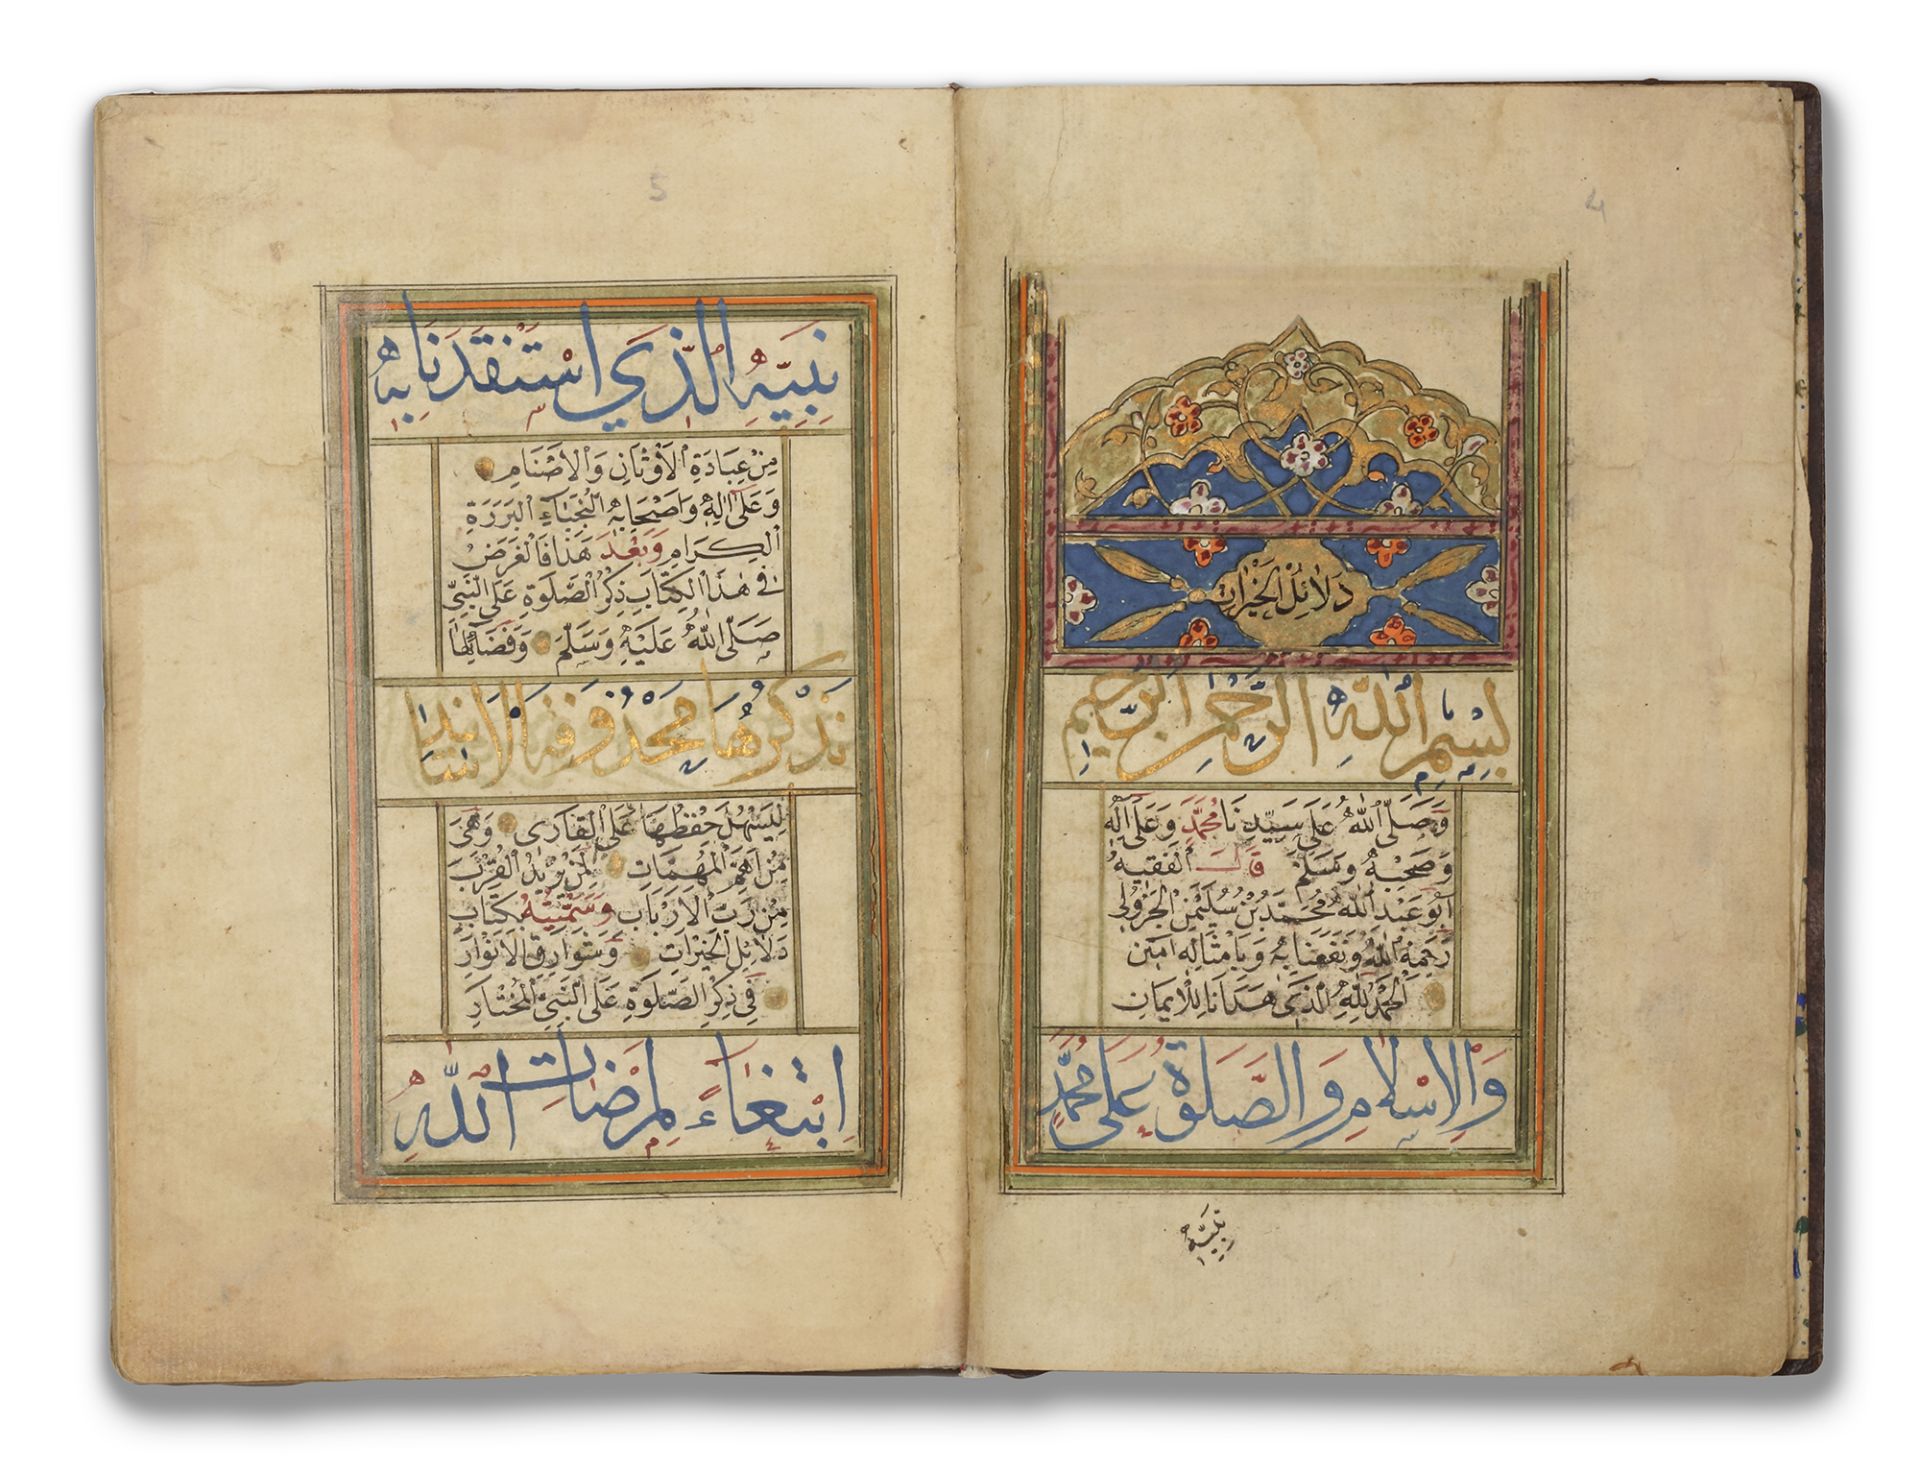 4
دَلَائِلُ الْخَيْرَاتِ
بِسْمِ اللّٰهِ الرَّحْمٰنِ الرَّحِيمِ
وَصَلَّى اللّٰهُ عَلَى سَيِّدِنَا مُحَمَّدٍ وَعَلَى اٰلِهِ
وَصَحْبِهِ وَسَلَّمَ قَالَ الْفَقِيهُ
اَبُو عَبْدِ اللّٰهِ مُحَمَّدُ بْنُ سُلَيْمٰنَ الْجَزُولِي
رَحِمَهُ اللّٰهُ وَنَفَعَنَا بِهِ وَبِاَمْثَالِهِ اٰمِين
الْحَمْدُ لِلّٰهِ الَّذِي هَدَانَا لِلْاِيمَانِ
وَالْاِسْلَامِ وَالصَّلٰوةُ عَلَى مُحَمَّدٍ
نَبِيِّهِ
5
نَبِيِّهِ الَّذِي اسْتَنْقَذَنَا بِهِ
مِنْ عِبَادَةِ الْاَوْثَانِ وَالْاَصْنَامِ
وَعَلَى اٰلِهِ وَاَصْحَابِهِ النُّجَبَاءِ الْبَرَرَةِ
الْكِرَامِ وَبَعْدَ هَذَا فَالْغَرَضُ
فِي هٰذَا الْكِتَابِ ذِكْرُ الصَّلٰوةِ عَلَى النَّبِيِّ
صَلَّى اللّٰهُ عَلَيْهِ وَسَلَّمَ وَفَضَائِلِهَا
نَذْكُرُهَا مَحْذُوفَةَ الْاَسَانِيدِ
لِيَسْهُلَ حِفْظُهَا عَلَى الْقَارِى وَهِيَ
مِنْ اَهَمِّ الْمُهِمَّاتِ لِمَنْ يُرِيدُ الْقُرْبَ
مِنْ رَبِّ الْاَرْبَابِ وَسَمَّيْتُهُ بِكِتَابِ
دَلَائِلِ الْخَيْرَاتِ وَشَوَارِقِ الْاَنْوَارِ
فِي ذِكْرِ الصَّلٰوةِ عَلَى النَّبِيِّ الْمُخْتَارِ
اِبْتِغَاءً لِمَرْضَاتِ اللّٰهِ